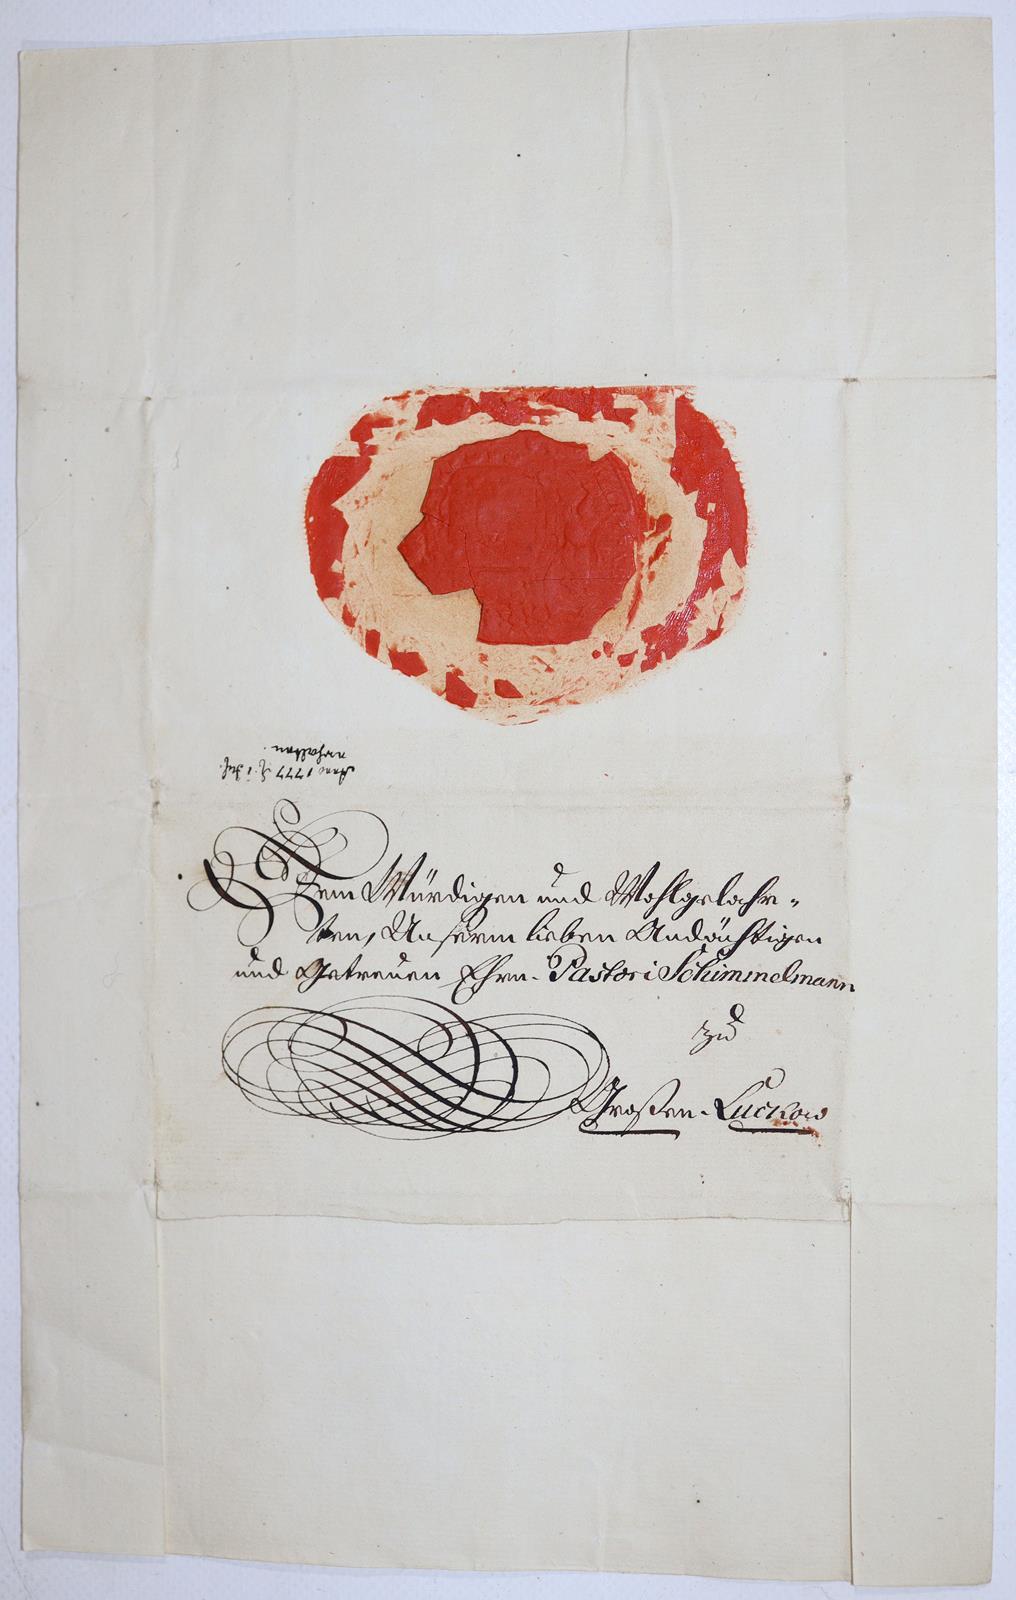 Anno 1777 d. 1 Jul.
erhalten.
Dem Würdigen und Wohlgelahr-
ten, Unserm lieben Andächtigen
und Getreuen Ehrn. Pastori Schimmelmann
zu
Großen-Luckow